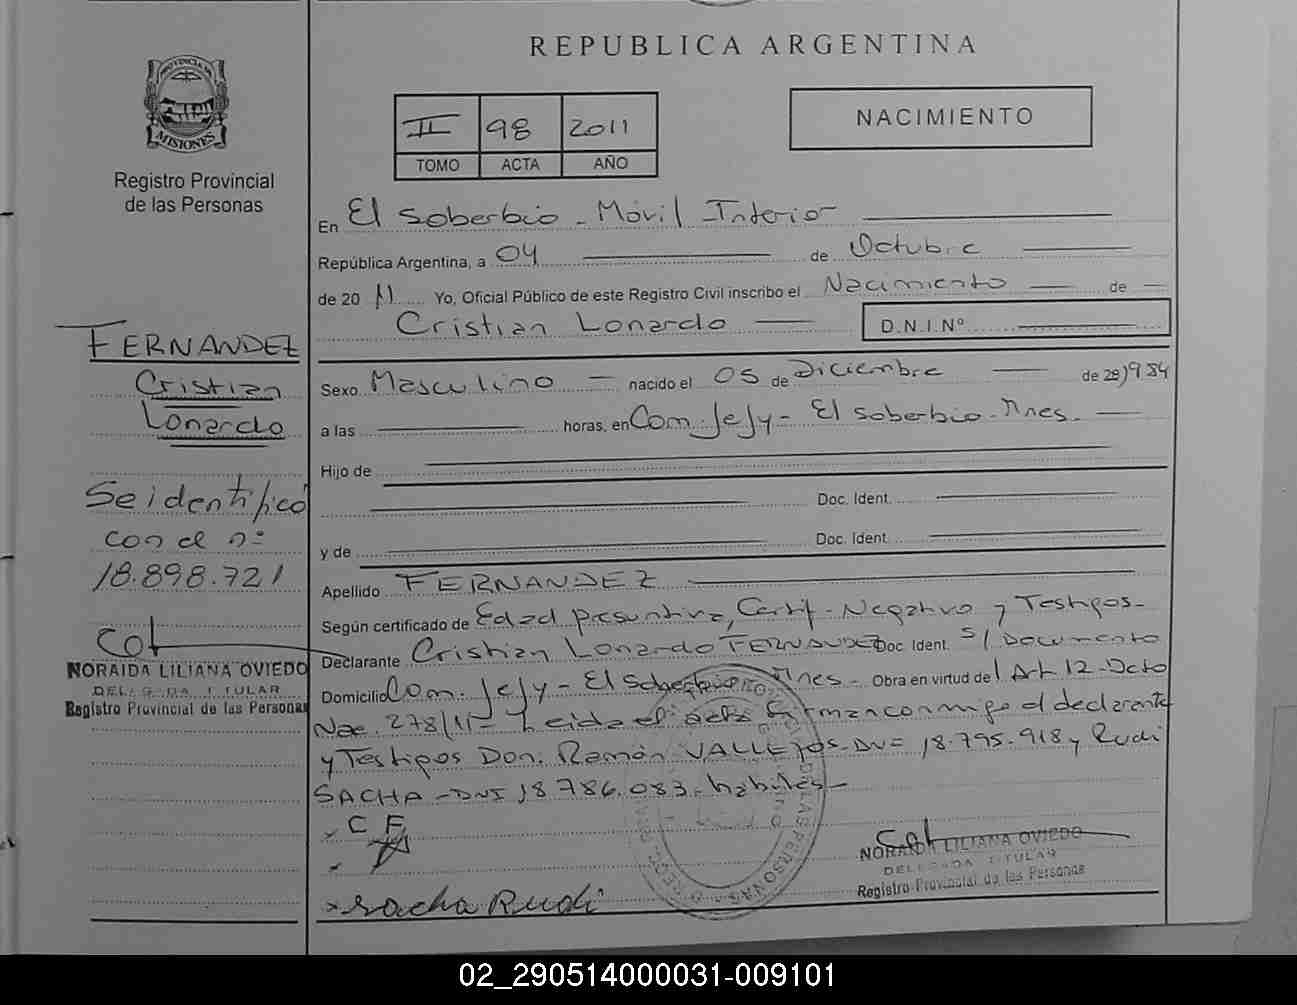 REPUBLICA ARGENTINA
PROVINCIA DE
MISIONES
Registro Provincial
de las Personas
II 98 2011
TOMO ACTA AÑO
NACIMIENTO
En El Soberbio - Móvil Interior
República Argentina, a 04 de Octubre
de 20 11 Yo, Oficial Público de este Registro Civil inscribo el Nacimiento de
Cristian Lonardo D.N.I.Nº
FERNANDEZ
Cristian
Lonardo
Se identificó
con el nº
18.898.721
NORAIDA LILIANA OVIEDO
DELEGADA TITULAR
Registro Provincial de las Personas
Sexo Masculino nacido el 05 de Diciembre de 20 1984
a las horas, en Com. Jejy - El Soberbio - Mnes.
Hijo de
Doc. Ident.
y de Doc. Ident.
Apellido FERNANDEZ
Según certificado de Edad presuntiva, Certif. Negativo y Testigos-
Declarante Cristian Lonardo FERNANDEZ Doc Ident. S/Documento
Domicilio Com. Jejy - El Soberbio Mnes- Obra en virtud de Art 12 - Dcto
Nac. 278/11- Leida el acta firman conmigo el declarante
y Testigos Don: Ramón VALLEJOS- DNI 18.795.918 y Rudi
SACHA - DNI 18 786.083- hábiles-
x C F
x Sacha Rudi
NORAIDA LILIANA OVIEDO
DELEGADA TITULAR
Registro Provincial de las Personas
02_290514000031-009101